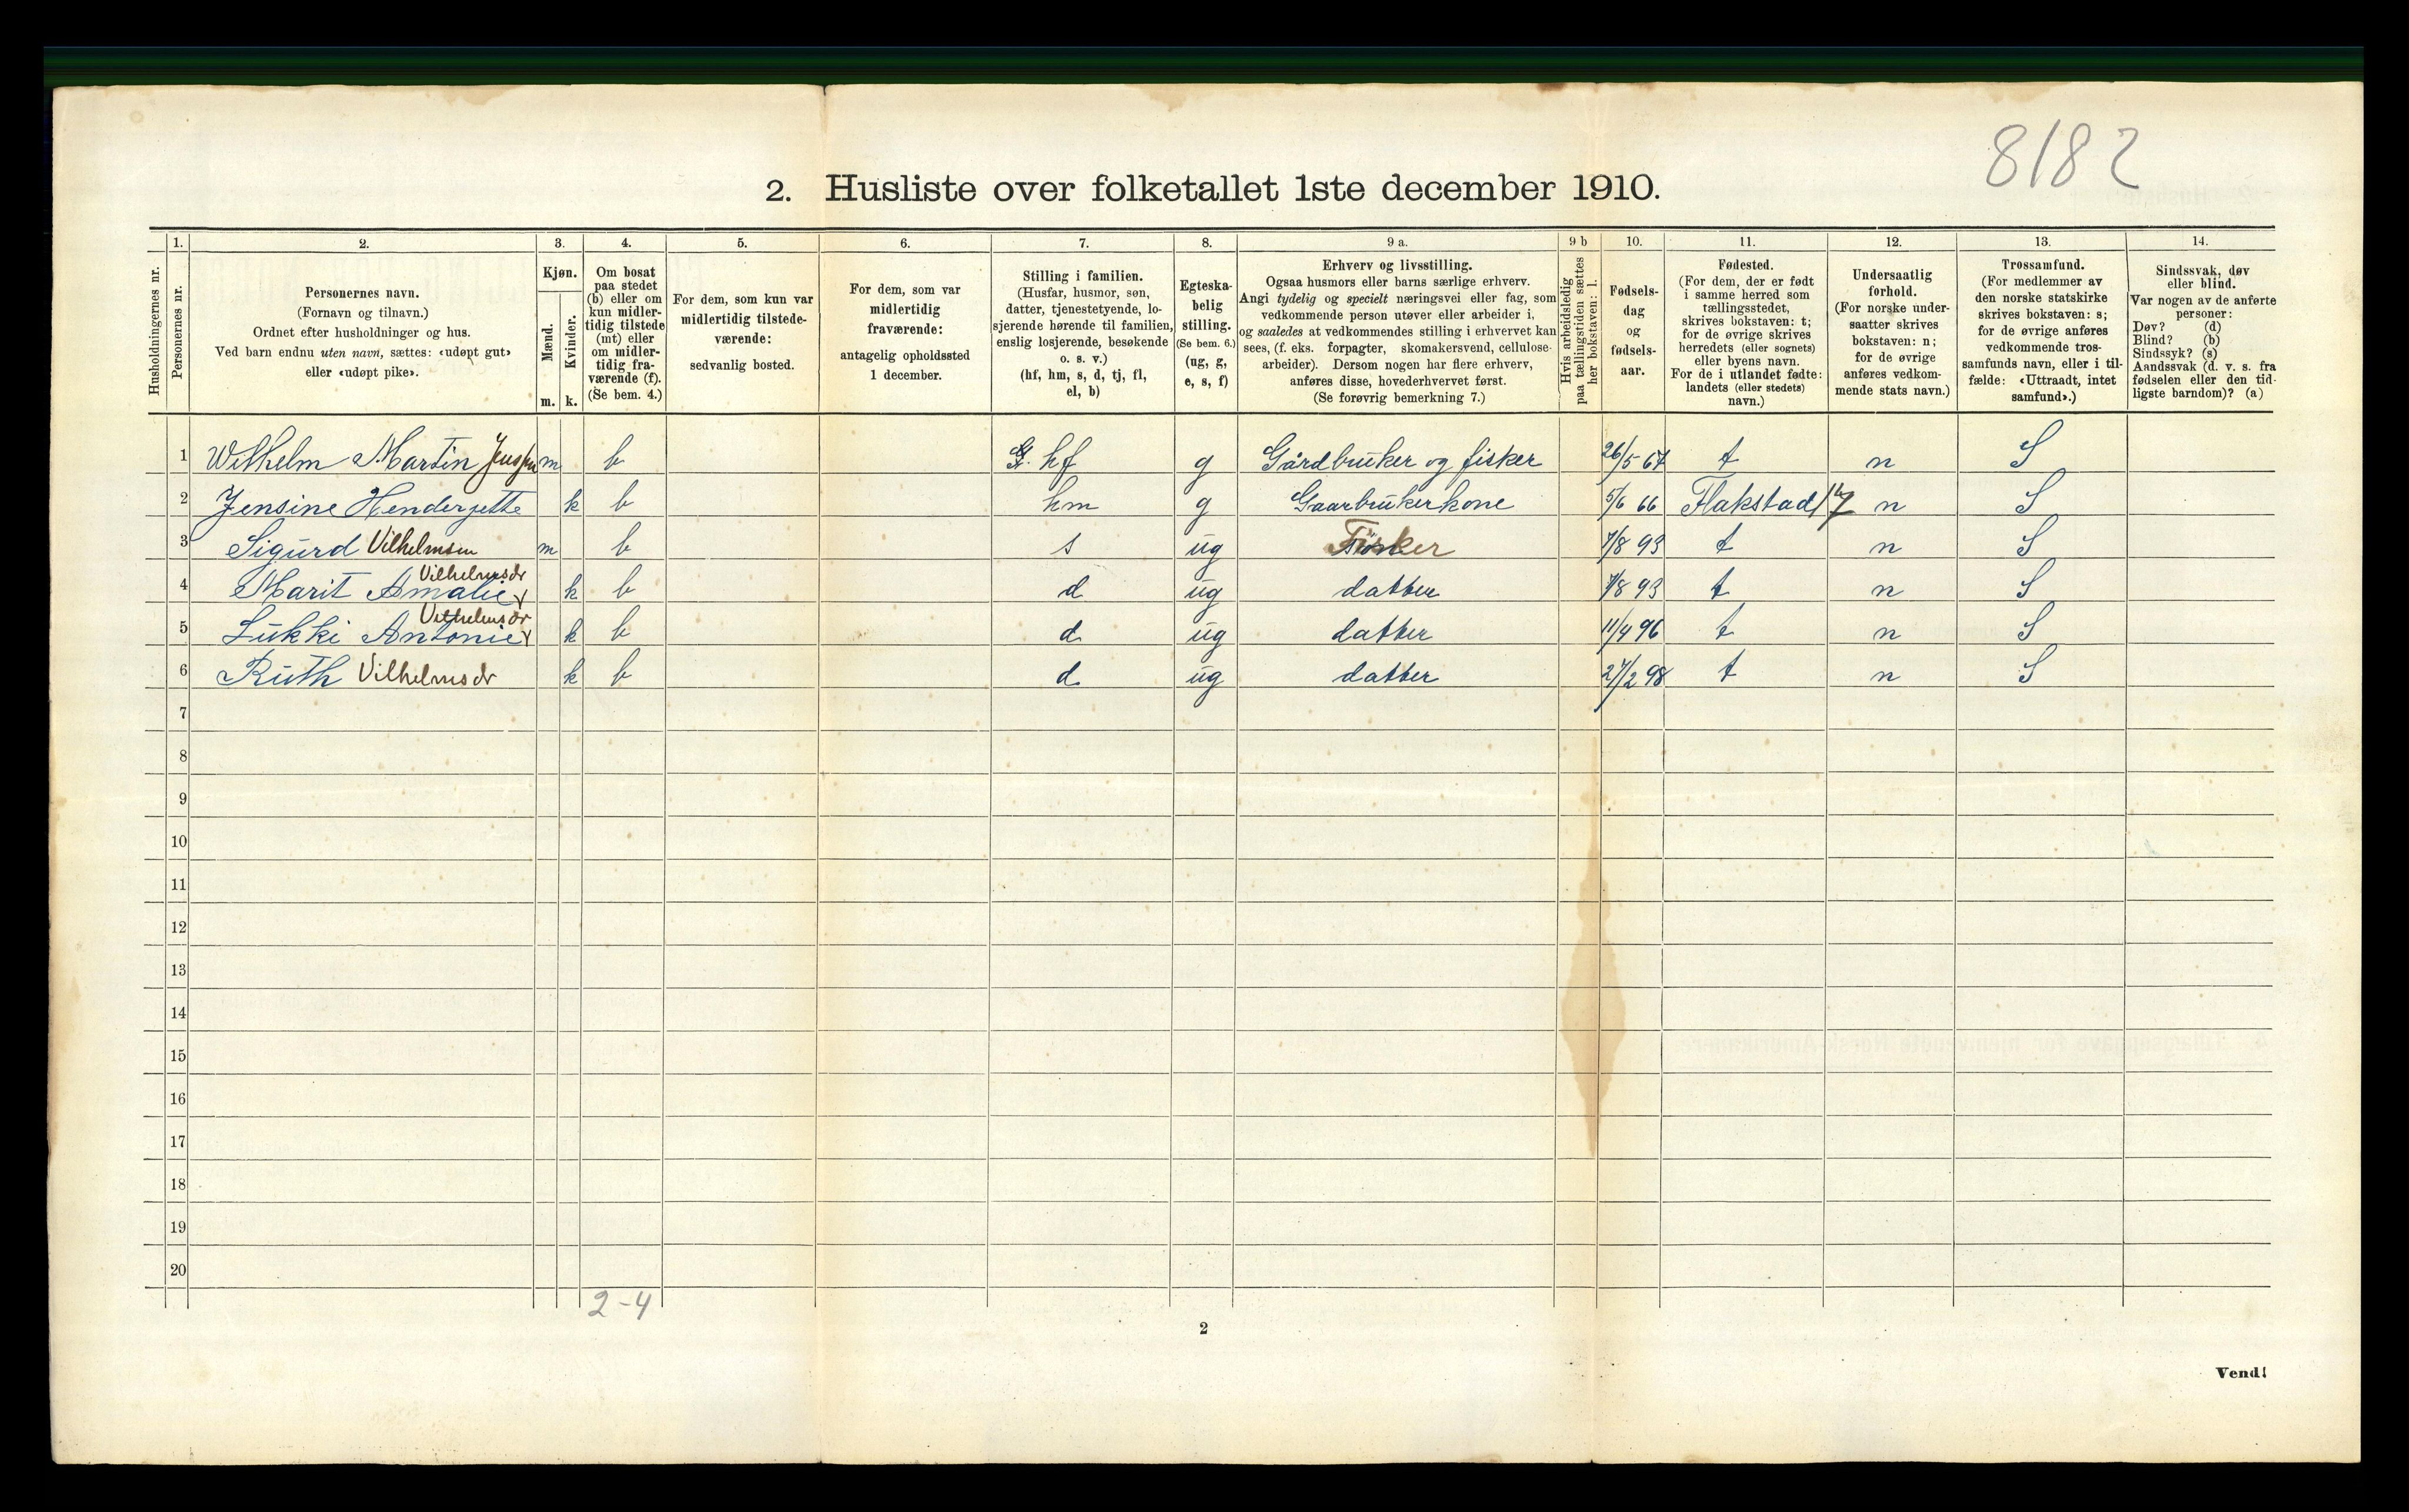 8182
2. Husliste over folketallet 1ste december 1910.
1. 2. 3. 4. 5. 6. 7. 8. 9 a. 9 b 10. 11. 12. 13. 14.
Husholdningernes nr.
Personernes nr.
Personernes navn.
(Fornavn og tilnavn.)
Ordnet efter husholdninger og hus.
Ved barn endnu uten navn, sættes: «udøpt gut»
eller «udøpt pike».
Kjøn.
Mænd.
Kvinder.
m. k.
Om bosat
paa stedet
(b) eller om
kun midler-
tidig tilstede
(mt) eller
om midler-
tidig fra-
værende (f).
(Se bem. 4.)
For dem, som kun var
midlertidig tilstede-
værende:
sedvanlig bosted.
For dem, som var
midlertidig
fraværende:
antagelig opholdssted
1 december.
Stilling i familien.
(Husfar, husmor, søn,
datter, tjenestetyende, lo-
sjerende hørende til familien,
enslig losjerende, besøkende
o. s. v.)
(hf, hm, s, d, tj, fl,
el, b)
Egteska-
belig
stilling.
(Se bem. 6.)
(ug, g,
e, s, f)
Erhverv og livsstilling.
Ogsaa husmors eller barns særlige erhverv.
Angi tydelig og specielt næringsvei eller fag, som
vedkommende person utøver eller arbeider i,
og saaledes at vedkommendes stilling i erhvervet kan
sees, (f. eks. forpagter, skomakersvend, cellulose-
arbeider). Dersom nogen har flere erhverv,
anføres disse, hovederhvervet først.
(Se forøvrig bemerkning 7.)
Hvis arbeidsledig
paa tællingstiden sættes
her bokstaven: l.
Fødsels-
dag
og
fødsels-
aar.
Fødested.
(For dem, der er født
i samme herred som
tællingsstedet,
skrives bokstaven: t;
for de øvrige skrives
herredets (eller sognets)
eller byens navn.
For de i utlandet fødte:
landets (eller stedets)
navn.)
Undersaatlig
forhold.
(For norske under-
saatter skrives
bokstaven: n;
for de øvrige
anføres vedkom-
mende stats navn.)
Trossamfund.
(For medlemmer av
den norske statskirke
skrives bokstaven: s;
for de øvrige anføres
vedkommende tros-
samfunds navn, eller i til-
fælde: «Uttraadt, intet
samfund».)
Sindssvak, døv
eller blind.
Var nogen av de anførte
personer:
Døv? (d)
Blind? (b)
Sindssyk? (s)
Aandssvak (d. v. s. fra
fødselen eller den tid-
ligste barndom)? (a)
1 Wilhelm Martin m b hf g Gårdbruker og fisker 26/5 67 t n S
2 Jensine Henderjette k b hm g Gaarbrukerkone 5/6 66 Flakstad n S
3 Sigurd Vilhelmsen m b s ug Fisker 7/8 93 t n S
4 Marit Amalie Vilhelmsdr k b d ug datter 7/8 93 t n S
5 Lukki Antonie Vilhelmsdr k b d ug datter 11/4 96 t n S
6 Ruth Vilhelmsdr k b d ug datter 27/2 98 t n S
7
8
9
10
11
12
13
14
15
16
17
18
19
20
2-4
2
Vend!